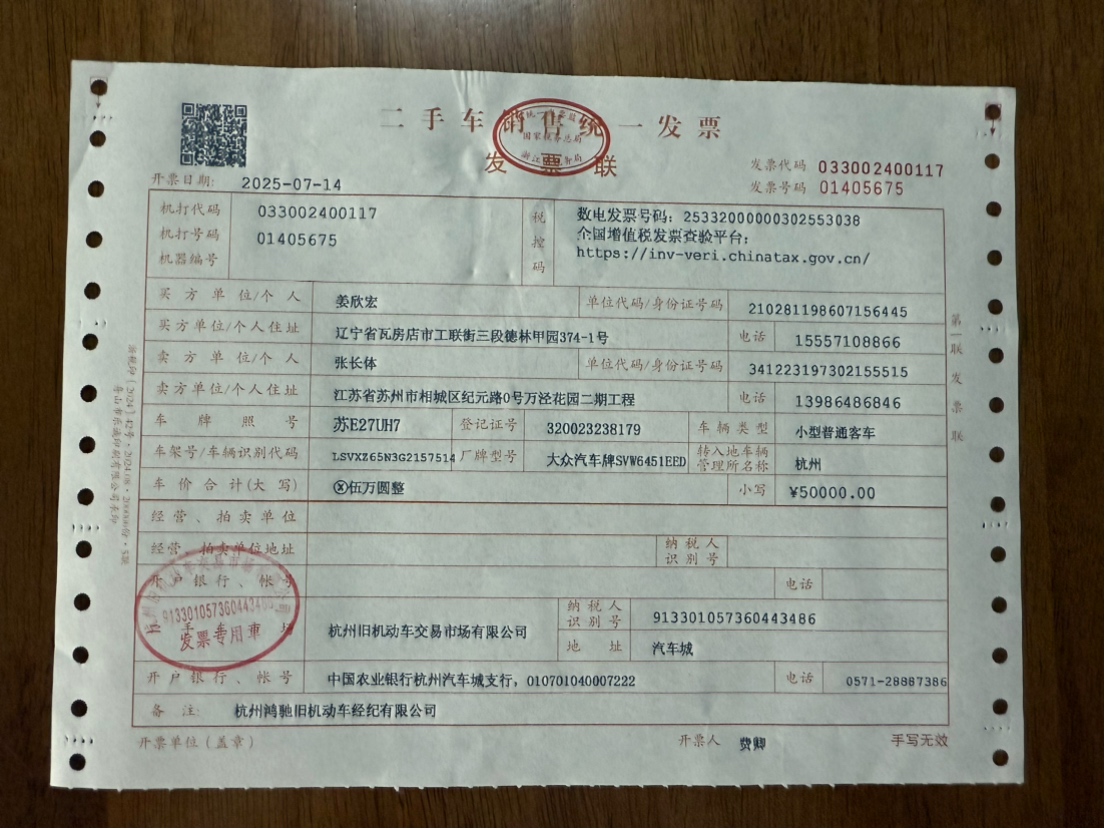 二手车销售统一发票
发票联
发票代码 033002400117
发票号码 01405675
开票日期: 2025-07-14
机打代码 033002400117
机打号码 01405675
机器编号
税控码
数电发票号码: 25332000000302553038
全国增值税发票查验平台:
https://inv-veri.chinatax.gov.cn/
买方单位/个人 姜欣宏 单位代码/身份证号码 210281198607156445
买方单位/个人住址 辽宁省瓦房店市工联街三段德林甲园374-1号 电话 15557108866
卖方单位/个人 张长体 单位代码/身份证号码 341223197302155515
卖方单位/个人住址 江苏省苏州市相城区纪元路0号万泾花园二期工程 电话 13986486846
车牌照号 苏E27UH7 登记证号 320023238179 车辆类型 小型普通客车
车架号/车辆识别代码 LSVXZ65N3G2157514 厂牌型号 大众汽车牌SVW6451EED 转入地车辆管理所名称 杭州
车价合计(大写) ⓧ伍万圆整 小写 ¥50000.00
经营、拍卖单位
经营、拍卖单位地址 纳税人识别号
开户银行、帐号 电话
杭州旧机动车交易市场有限公司 纳税人识别号 913301057360443486
地址 汽车城
开户银行、帐号 中国农业银行杭州汽车城支行, 010701040007222 电话 0571-28887386
备注: 杭州鸿驰旧机动车经纪有限公司
开票单位(盖章) 开票人 费卿 手写无效
第一联 发票联
国家税务总局
发票专用章